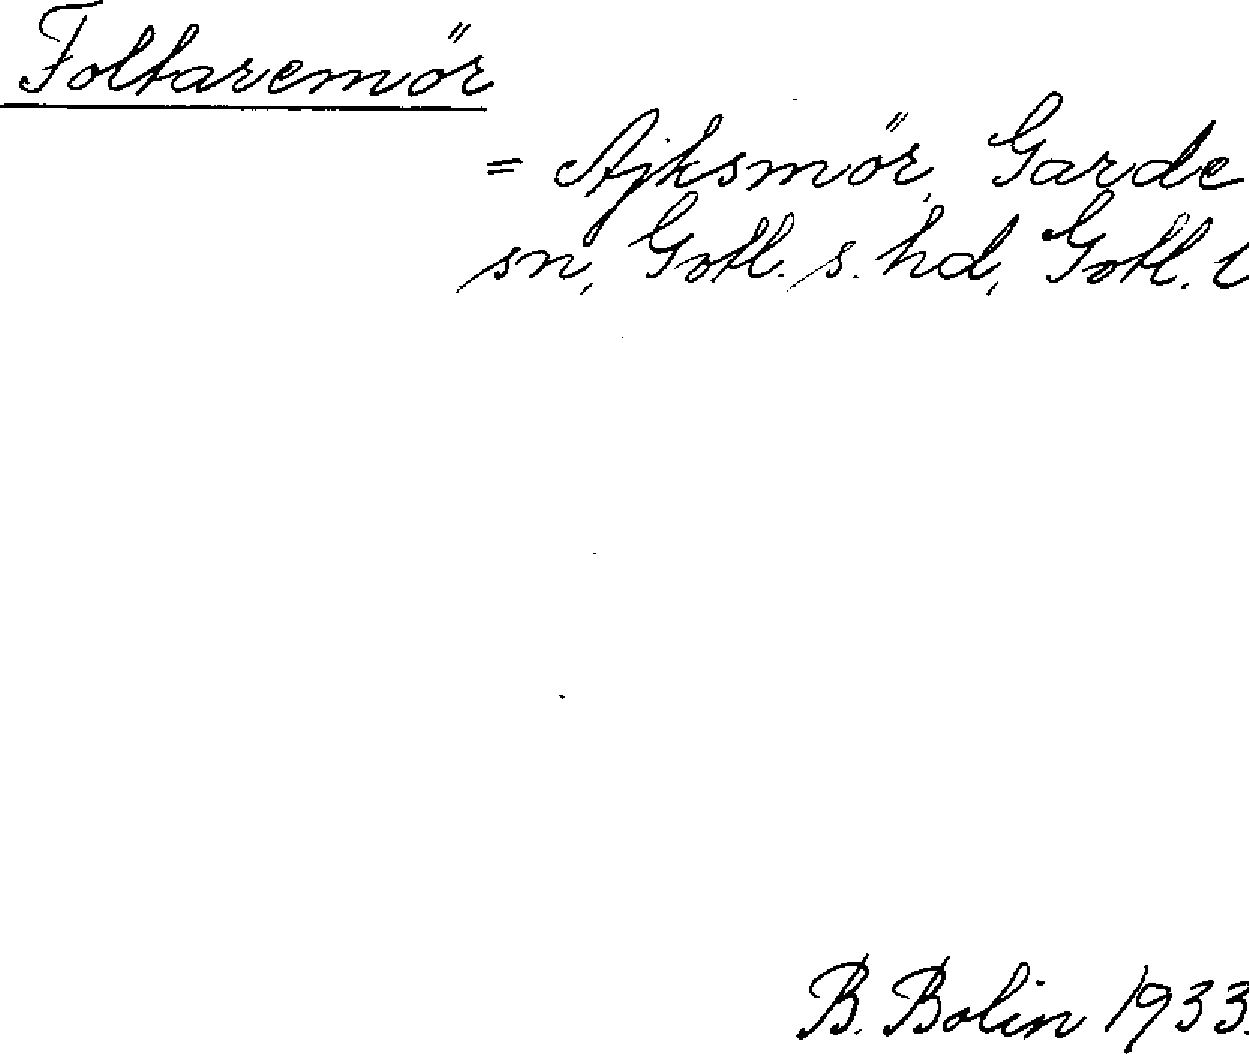 Foltaremör
= Ajksmör, Garde
sn, Gotl. s. hd, Gotl. l
B. Bolin 1933.